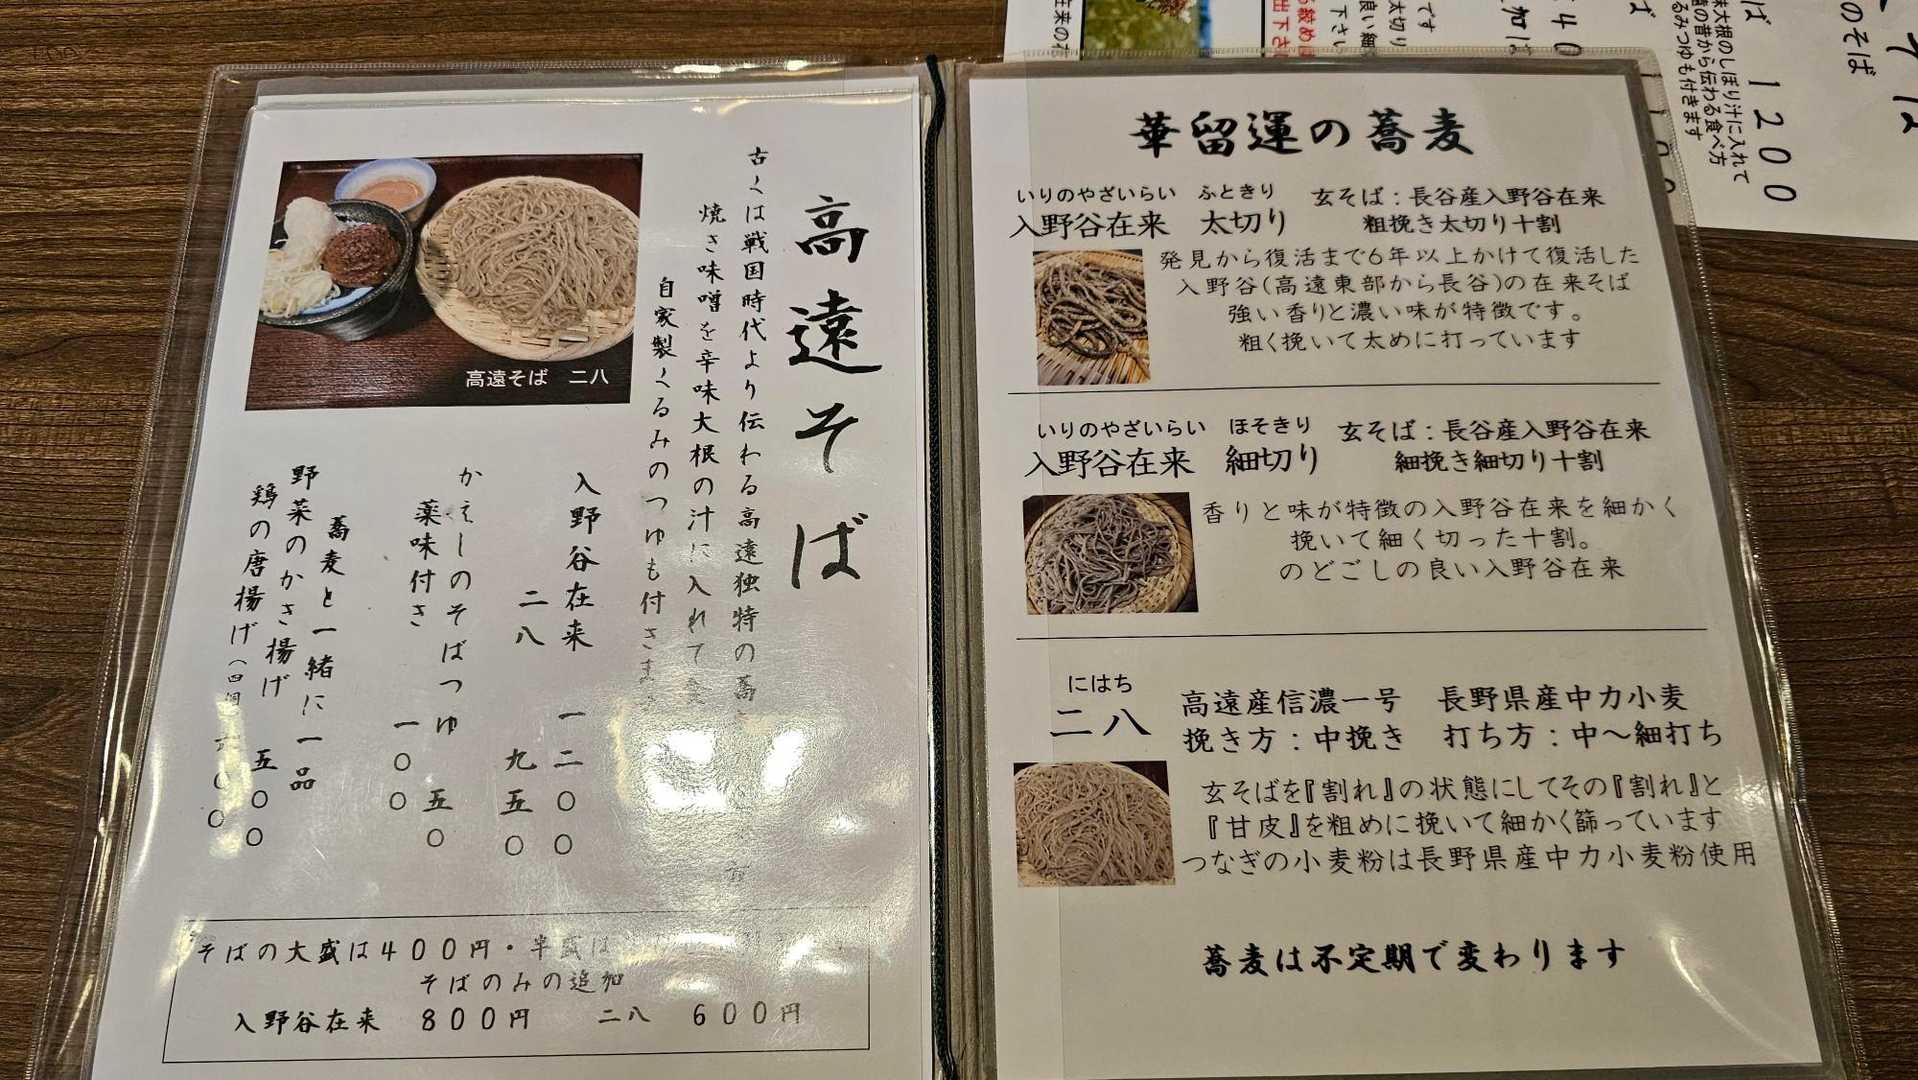 高遠そば
古くは戦国時代より伝わる高遠独特の蕎
焼き味噌を辛味大根の汁に入れて食
自家製くるみのつゆも付きます
高遠そば 二八
入野谷在来 一二〇〇
二八 九五〇
かえしのそばつゆ 五〇
薬味付き 一〇〇
蕎麦と一緒に一品
野菜のかき揚げ 五〇〇
鶏の唐揚げ(四個
そばの大盛は400円・半盛は
そばのみの追加
入野谷在来 800円 二八 600円
華留運の蕎麦
いりのやざいらい ふときり
入野谷在来 太切り
玄そば:長谷産入野谷在来
粗挽き太切り十割
発見から復活まで6年以上かけて復活した
入野谷(高遠東部から長谷)の在来そば
強い香りと濃い味が特徴です。
粗く挽いて太めに打っています
いりのやざいらい ほそきり
入野谷在来 細切り
玄そば:長谷産入野谷在来
細挽き細切り十割
香りと味が特徴の入野谷在来を細かく
挽いて細く切った十割。
のどごしの良い入野谷在来
にはち
二八
高遠産信濃一号 長野県産中力小麦
挽き方:中挽き 打ち方:中～細打ち
玄そばを『割れ』の状態にしてその『割れ』と
『甘皮』を粗めに挽いて細かく篩っています
つなぎの小麦粉は長野県産中力小麦粉使用
蕎麦は不定期で変わります
のそば
ば 1200
味大根のしぼり汁に入れて
の昔から伝わる食べ方
るみつゆも付きます